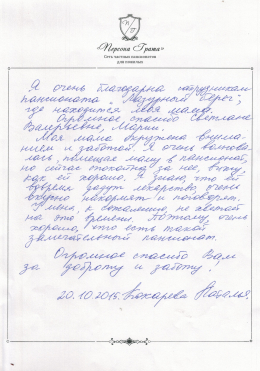 «Персона Грата»
Сеть частных пансионатов
для пожилых
Я очень благодарна сотрудникам
пансионата "Лазурный берег",
где находится моя мама.
Огромное спасибо Светлане
Валерьевне, Марии.
Моя мама окружена внима-
нием и заботой. Я очень волнова-
лась, помещая маму в пансионат,
но сейчас спокойна за нее, вижу
как ей хорошо. Я знаю, что ей
вовремя дадут лекарство, очень
вкусно накормят и поговорят.
У меня, к сожалению не хватает
на это времени. Поэтому, очень
хорошо, что есть такой
замечательный пансионат.
Огромное спасибо Вам
за доброту и заботу!
20.10.2018. Бокарева Наталья.